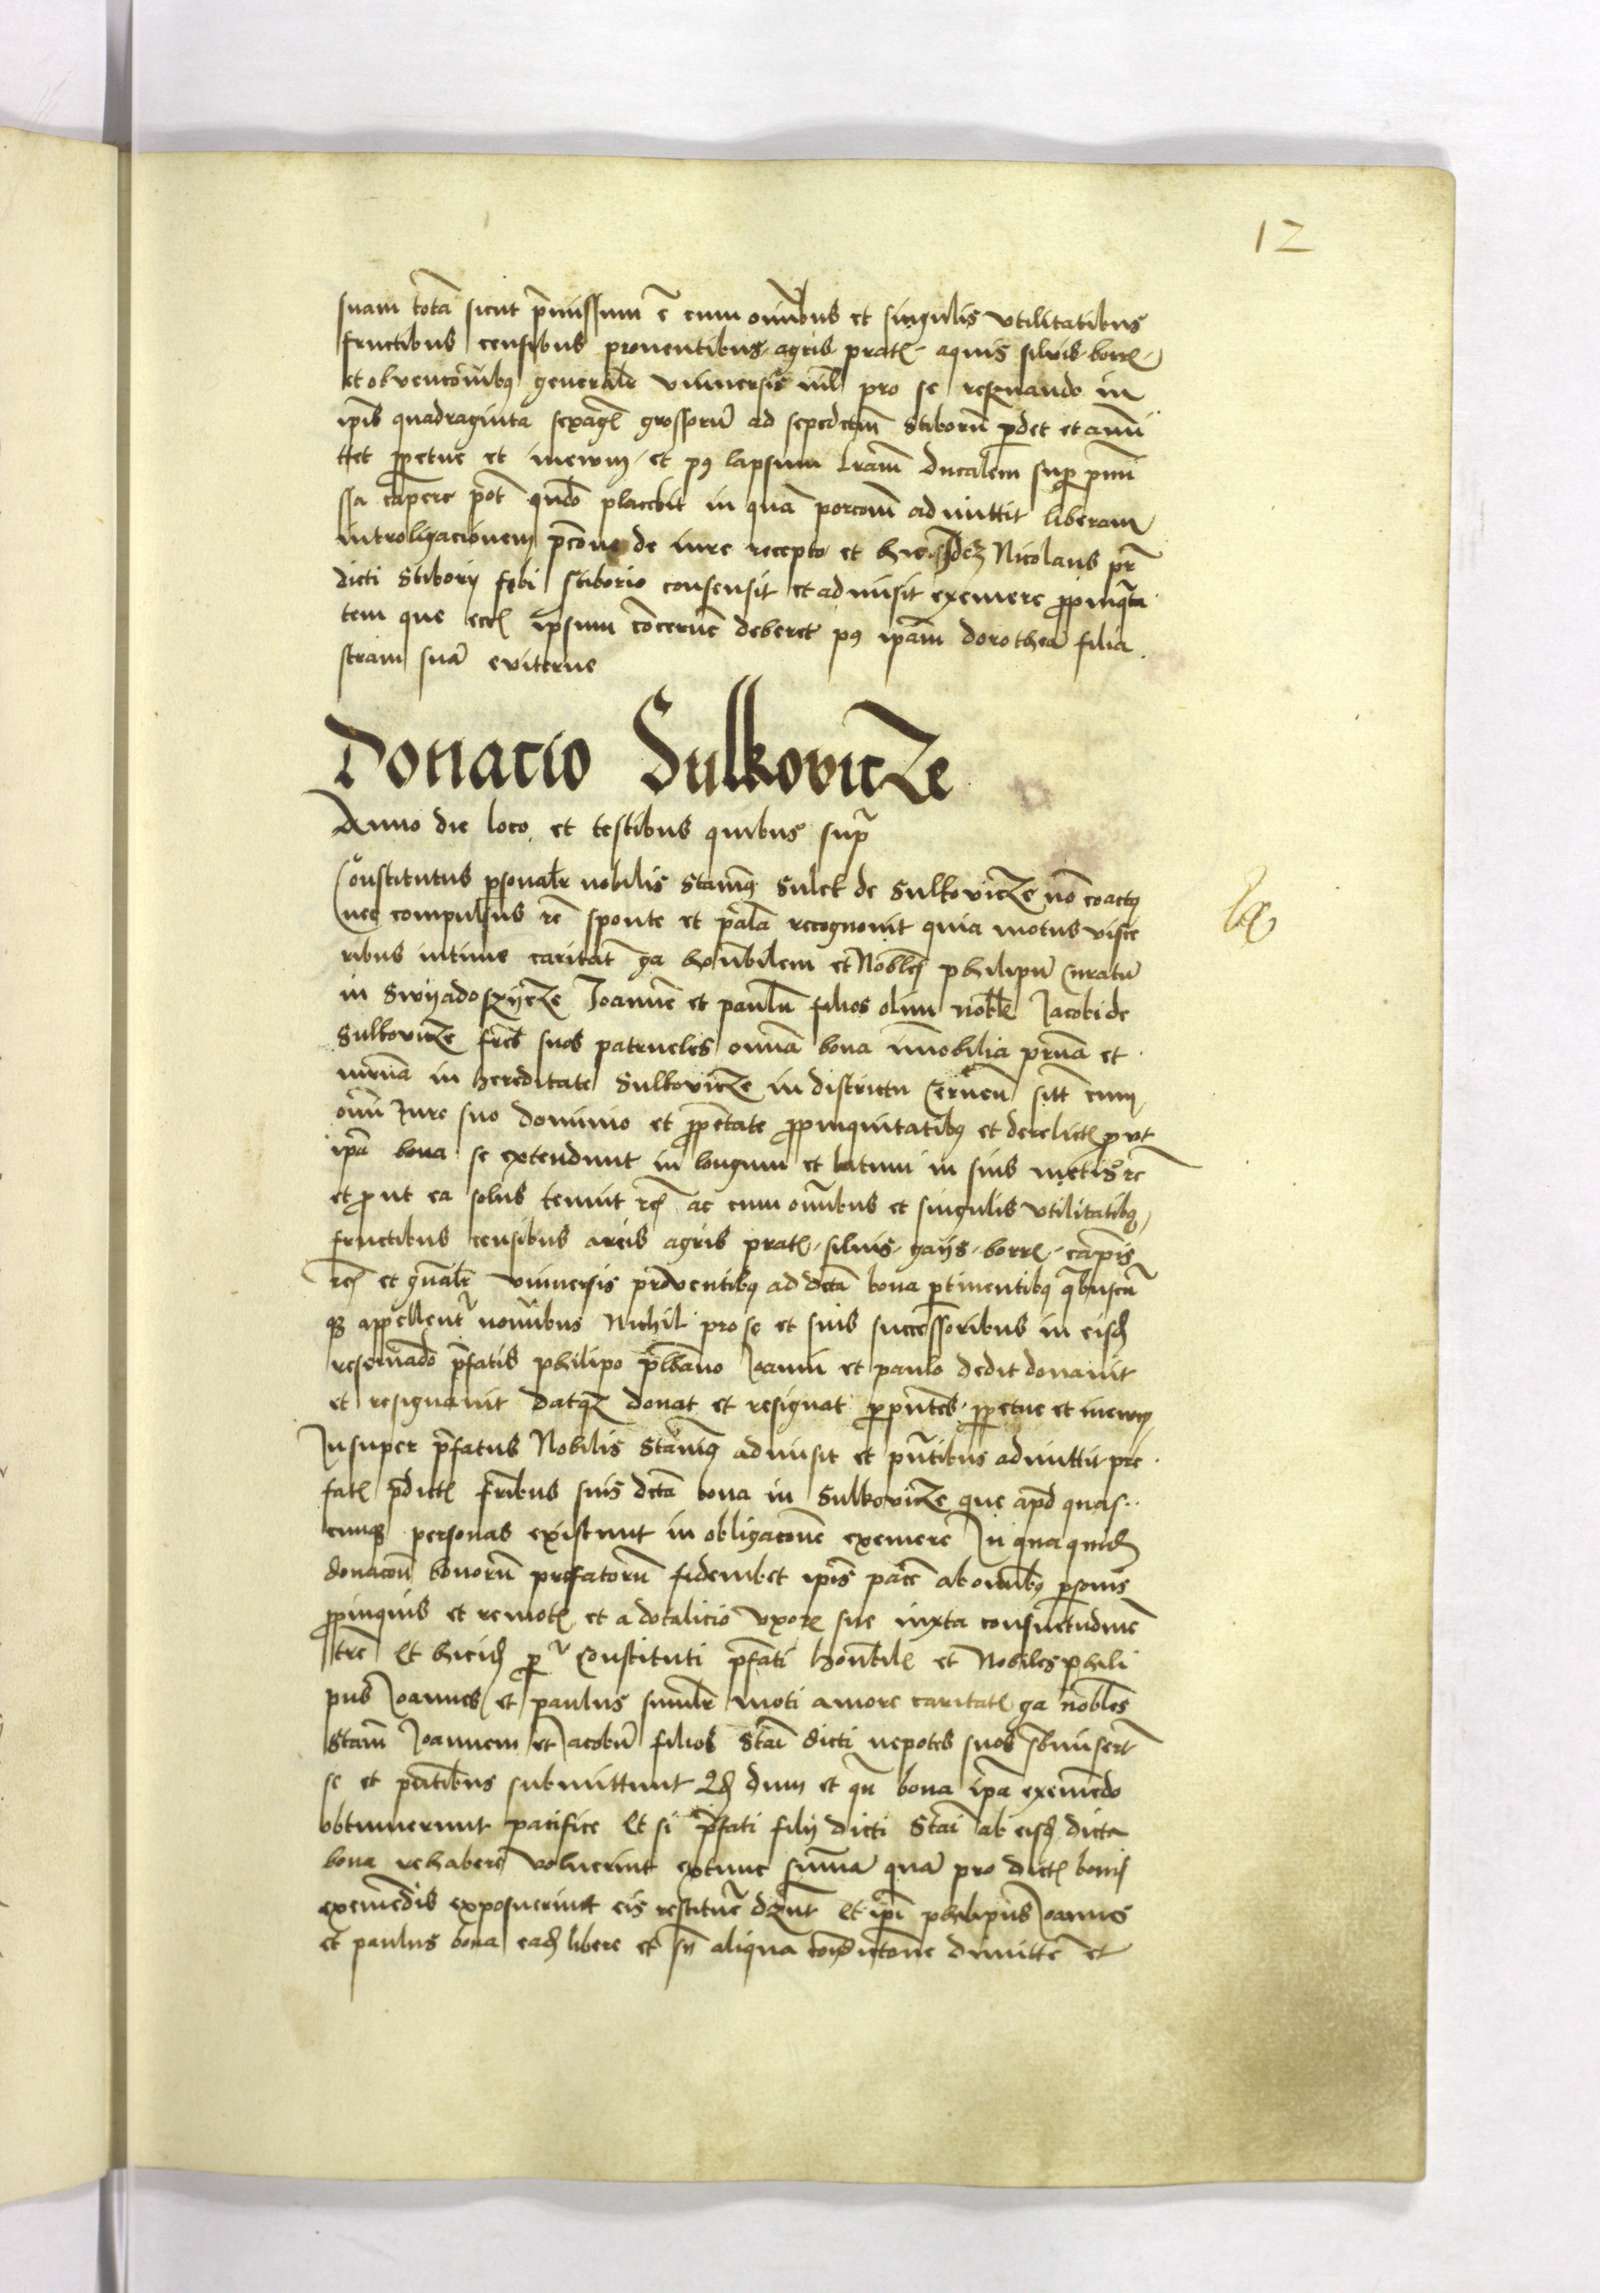 12
suam totā sicut p̄missum ē cum om̄ibus et singulis vtilitatibus
fructibus censibus prouentibus agris prat̄ aquis siluis borr̄
et obvencōnibus general̄r vniuersis nil̄ pro se reseruando in
ip̄is quadraginta sexaḡ grossorū ad sepedctum Stiborū pdet et amit
tet ppetue et inewm et p9 lapsum lrām ducalem sup p̄mi
ssa cāpere pot̄ qn̄do placebit in quā porcōm admittit liberam
introligacionem de iure recepto et Nicolaus pr̄
dicti Stiborij sibi Stiborio consensit et admisit exemere ppinq̄ta
tem que ecc̄ ipsum cōcernē deberet p9 ip̄am dorotheā filia
stram suā eviterne
Donacio Sulkovicze
Anno die loco et testibus quibus sup̄
Constitutus psonalr̄ nobilis Stanis9 Sulek de Sulkovicze nō coact9
nec compulsus rc̄ sponte et p̄alā recognouit quia motus visce
ribus intime caritat̄ ga honbilem et Nobiles philipū Curatū
in Swyadoszycze Joannē et paulū filios olim nobl̄ Jacobi de
Sulkovicze fr̄es suos patrueles omnia bona im̄obilia prn̄a et
mrn̄a in hereditate Sulkovicze in districtu Cernen̄ sitt cum
om̄i Jure suo dominio et pprietate ppinquitatib9 et derelict̄ put
ip̄a bona se extendunt in longum et latum in suis metis rc̄
et prout ea solus tenuit rc̄ ac cum om̄ibus et singulis vtilitatib9
fructibus censibus areis agris prat̄ siluis gaijs borr̄ cāpis
rc̄ et gn̄alr̄ vniuersis prōventib9 ad dc̄ta bona ptinentib9 q̄buscū
q3 appellent̄ nom̄ibus Nichil pro se et suis successoribus in eisd̄
reseruādo p̄fatis philipo pl̄bano Joanni et paulo dedit donauit
et resignauit datq3 donat et resignat p pn̄tes ppetue et inewm
Insuper p̄fatus Nobilis Stanis9 admisit et pn̄tibus admittit pre
fat̄ p̄dict̄ fr̄ibus suis dc̄ta bona in Sulkovicze que apd̄ quas
cumq3 personas existunt in obligacōne exemere In qua quid̄
donacōn̄ bonorū prefatorū fideiubet ip̄is pacē ab om̄ib9 psonis
ppinquis et remot̄ et a dotalicio vxor̄ sue iuxta consuetudinē
trē Et hicid̄ p Constituti p̄fati honbil̄ et Nobiles phili
pus Joannes et paulus simil̄r moti amore caritat̄ ga nobles
Stanis̄ Joannem et Jacobū filios Stai dicti nepotes suos submiser̄t
se et pn̄tibus submittunt Qd̄ dum et qn̄ bona ip̄a exemēdo
obtinuerunt pacifice Et si p̄fati filij dicti Stai ab eisd̄ dicta
bona rehabere voluerint extunc sum̄a quā pro dict̄ bonis
exemēdis exposuerint eis restituē dbūt Et ip̄i philipus Joannes
et paulus bona ead̄ libere et sn̄ aliqua cond̄ictōne dimittē et